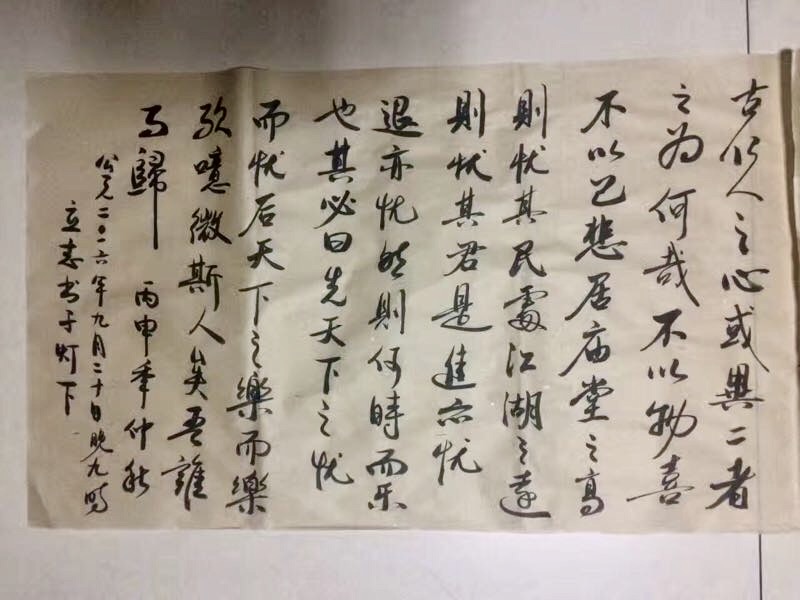 古仁人之心或異二者
之為何哉不以物喜
不以己悲居庙堂之高
則忧其民處江湖之遠
則忧其君是進亦忧
退亦忧然則何時而乐
也其必曰先天下之忧
而忧后天下之樂而樂
欤噫微斯人矣吾誰
与歸 丙申秊仲秋
公元二〇一六年九月二十日晚九時
立志书于灯下